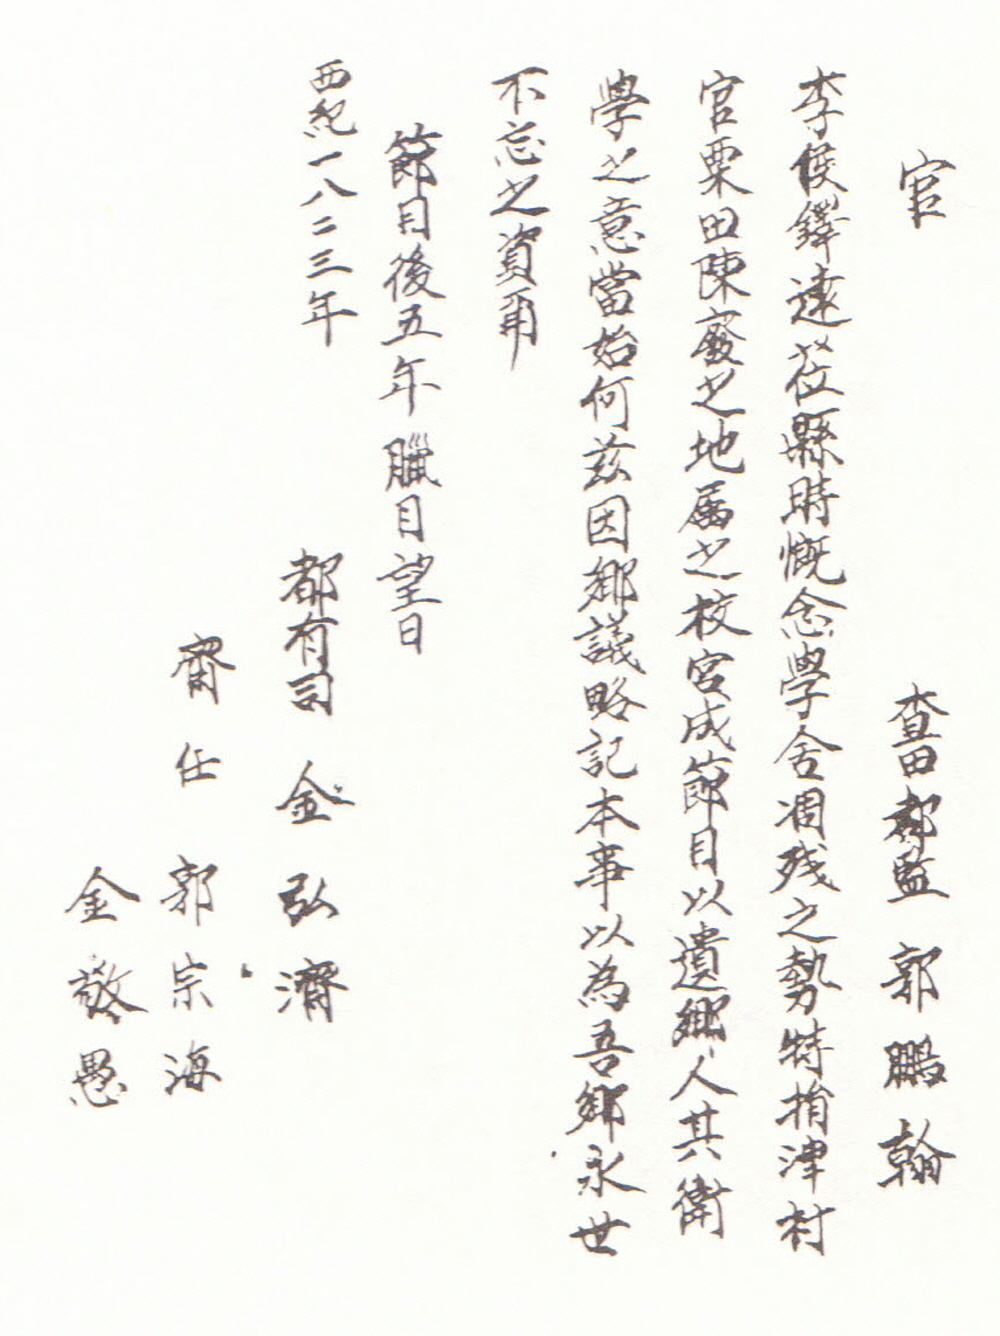 官 畓田都監 郭鵬翰
李侯鐸遠莅縣時慨念學舍凋残之勢特捐津村
官栗田陳廢之地属之校宮成節目以遺鄉人其衛
學之意當始何玆因鄉議略記本事以為吾鄉永世
不忘之資甭
節目後五年臘月望日
西紀一八二三年
都有司 金弘濟
齋任 郭宗海
金敬愚